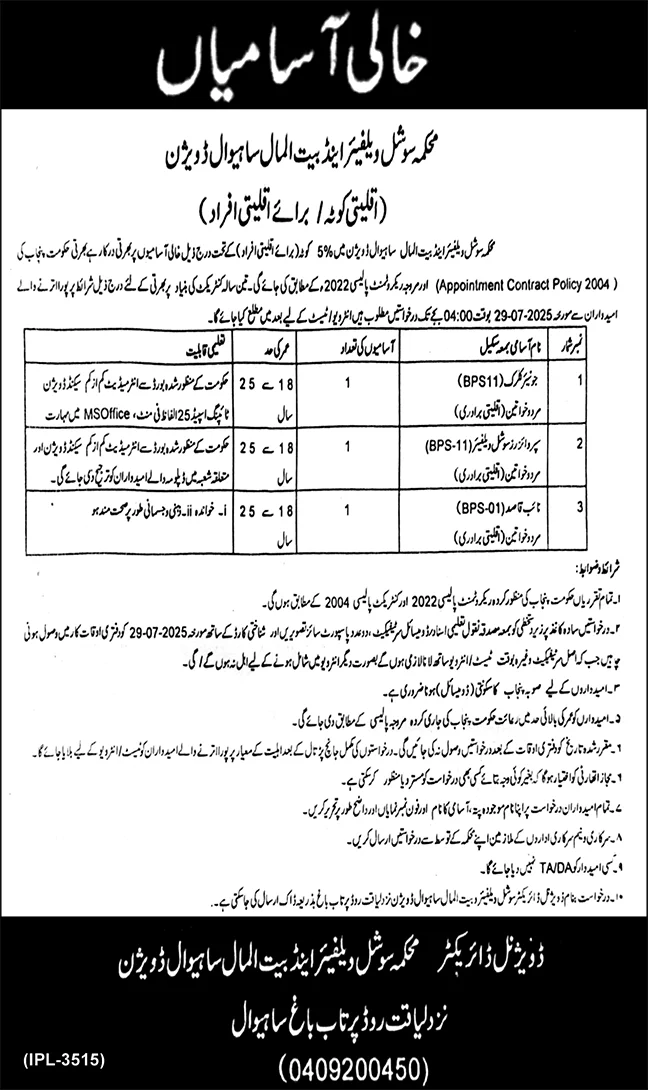 خالی آسامیاں
محکمہ سوشل ویلفیئر اینڈ بیت المال ساہیوال ڈویژن
(اقلیتی کوٹہ / برائے اقلیتی افراد)
محکمہ سوشل ویلفیئر اینڈ بیت المال ساہیوال ڈویژن میں 5% کوٹہ (برائے اقلیتی افراد) کے تحت درج ذیل خالی آسامیوں پر بھرتی درکار ہے بھرتی حکومت پنجاب کی
(Appointment Contract Policy 2004) اور مروجہ ریکروٹمنٹ پالیسی 2022ء کے مطابق کی جائے گی۔ تین سالہ کنٹریکٹ کی بنیاد پر بھرتی کے لئے درج ذیل شرائط پر پورا اترنے والے
امیدواران سے مورخہ 29-07-2025 بوقت 04:00 بجے تک درخواستیں مطلوب ہیں انٹرویو/ٹیسٹ کے لیے بعد میں مطلع کیا جائے گا۔
نمبر شمار نام آسامی بمعہ سکیل آسامیوں کی تعداد عمر کی حد تعلیمی قابلیت
1 جونیئر کلرک (BPS11) 1 18 سے 25 حکومت کے منظور شدہ بورڈ سے انٹرمیڈیٹ کم از کم سیکنڈ ڈویژن
مرد و خواتین (اقلیتی برادری) سال ٹائپنگ اسپیڈ 25 الفاظ فی منٹ، MSOffice میں مہارت
2 سپروائزر سوشل ویلفیئر (BPS-11) 1 18 سے 25 حکومت کے منظور شدہ بورڈ سے انٹرمیڈیٹ کم از کم سیکنڈ ڈویژن اور
مرد و خواتین (اقلیتی برادری) سال متعلقہ شعبہ میں ڈپلومہ والے امیدواران کو ترجیح دی جائے گی۔
3 نائب قاصد (BPS-01) 1 18 سے 25 i۔ خواندہ ii۔ ذہنی و جسمانی طور پر صحت مند ہو
مرد و خواتین (اقلیتی برادری) سال
شرائط و ضوابط:
۱۔ تمام تقرریاں حکومت پنجاب کی منظور کردہ ریکروٹمنٹ پالیسی 2022 اور کنٹریکٹ پالیسی 2004 کے مطابق ہوں گی۔
۲۔ درخواستیں سادہ کاغذ پر زیر دستخطی کو بمعہ مصدقہ نقول تعلیمی اسناد و ڈومیسائل سرٹیفکیٹ، دو عدد پاسپورٹ سائز تصویریں اور شناختی کارڈ کے ساتھ مورخہ 29-07-2025 کو دفتری اوقات کار میں وصول ہونی
چاہیں جب کہ اصل سرٹیفکیٹ وغیرہ بوقت ٹیسٹ / انٹرویو ساتھ لانا لازمی ہوں گے بصورت دیگر انٹرویو میں شامل ہونے کے لیے اہل نہ ہوں گے/گی۔
۳۔ امیدواروں کے لیے صوبہ پنجاب کا سکونتی (ڈومیسائل) ہونا ضروری ہے۔
۵۔ امیدواروں کو عمر کی بالائی حد میں رعائت حکومت پنجاب کی جاری کردہ مروجہ پالیسی کے مطابق دی جائے گی۔
۶۔ مقرر شدہ تاریخ کو دفتری اوقات کے بعد درخواستیں وصول نہ کی جائیں گی۔ درخواستوں کی مکمل جانچ پڑتال کے بعد اہلیت کے معیار پر پورا اترنے والے امیدواران کو ٹیسٹ/انٹرویو کے لیے بلایا جائے گا۔
۶۔ مجاز اتھارٹی کو اختیار ہوگا کہ بغیر کوئی وجہ بتائے کسی بھی درخواست کو مسترد یا منظور کر سکتی ہے۔
۷۔ تمام امیدواران درخواست پر اپنا نام موجودہ پتہ، آسامی کا نام اور فون نمبر نمایاں اور واضح طور پر تحریر کریں۔
۸۔ سرکاری و نیم سرکاری اداروں کے ملازمین اپنے محکمہ کے توسط سے درخواستیں ارسال کریں۔
۹۔ کسی امیدوار کو TA/DA نہیں دیا جائے گا۔
۱۰۔ درخواست بنام ڈویژنل ڈائریکٹر سوشل ویلفیئر و بیت المال ساہیوال ڈویژن نزد لیاقت روڈ پرتاب باغ بذریعہ ڈاک ارسال کی جا سکتی ہے۔
ڈویژنل ڈائریکٹر محکمہ سوشل ویلفیئر اینڈ بیت المال ساہیوال ڈویژن
نزد لیاقت روڈ پرتاب باغ ساہیوال
(0409200450)
(IPL-3515)